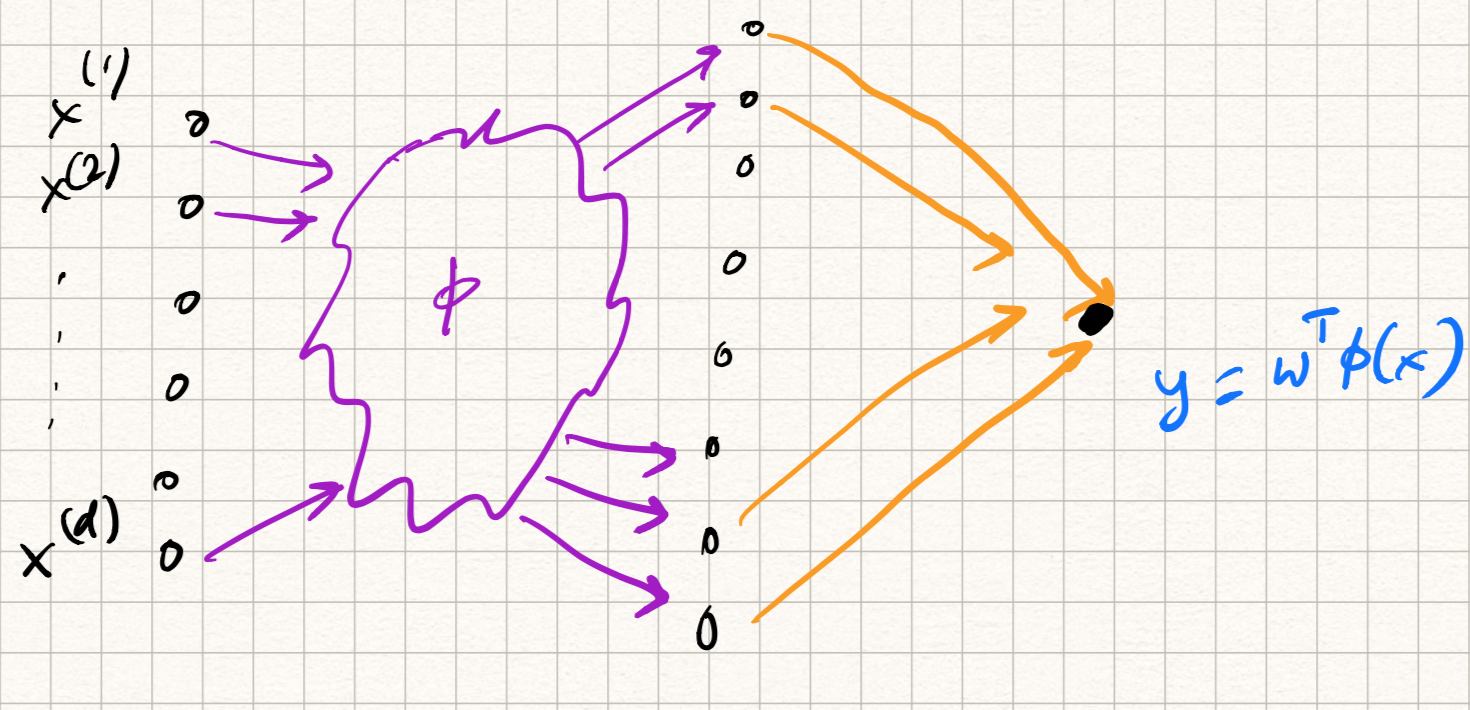 x^(1)
x^(2)
x^(d)
ϕ
y = w^T ϕ(x)